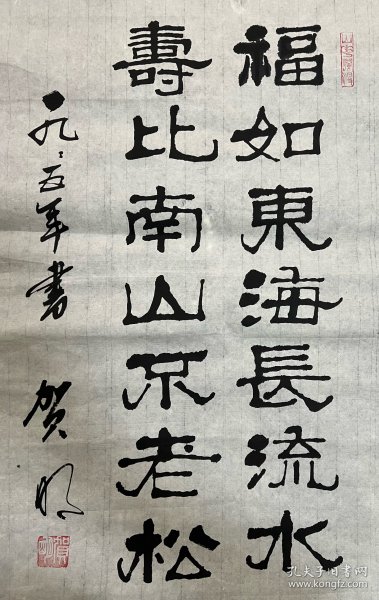 福如東海長流水
壽比南山不老松
一九九五年書
賀明
孔夫子旧书网
www.kongfz.com